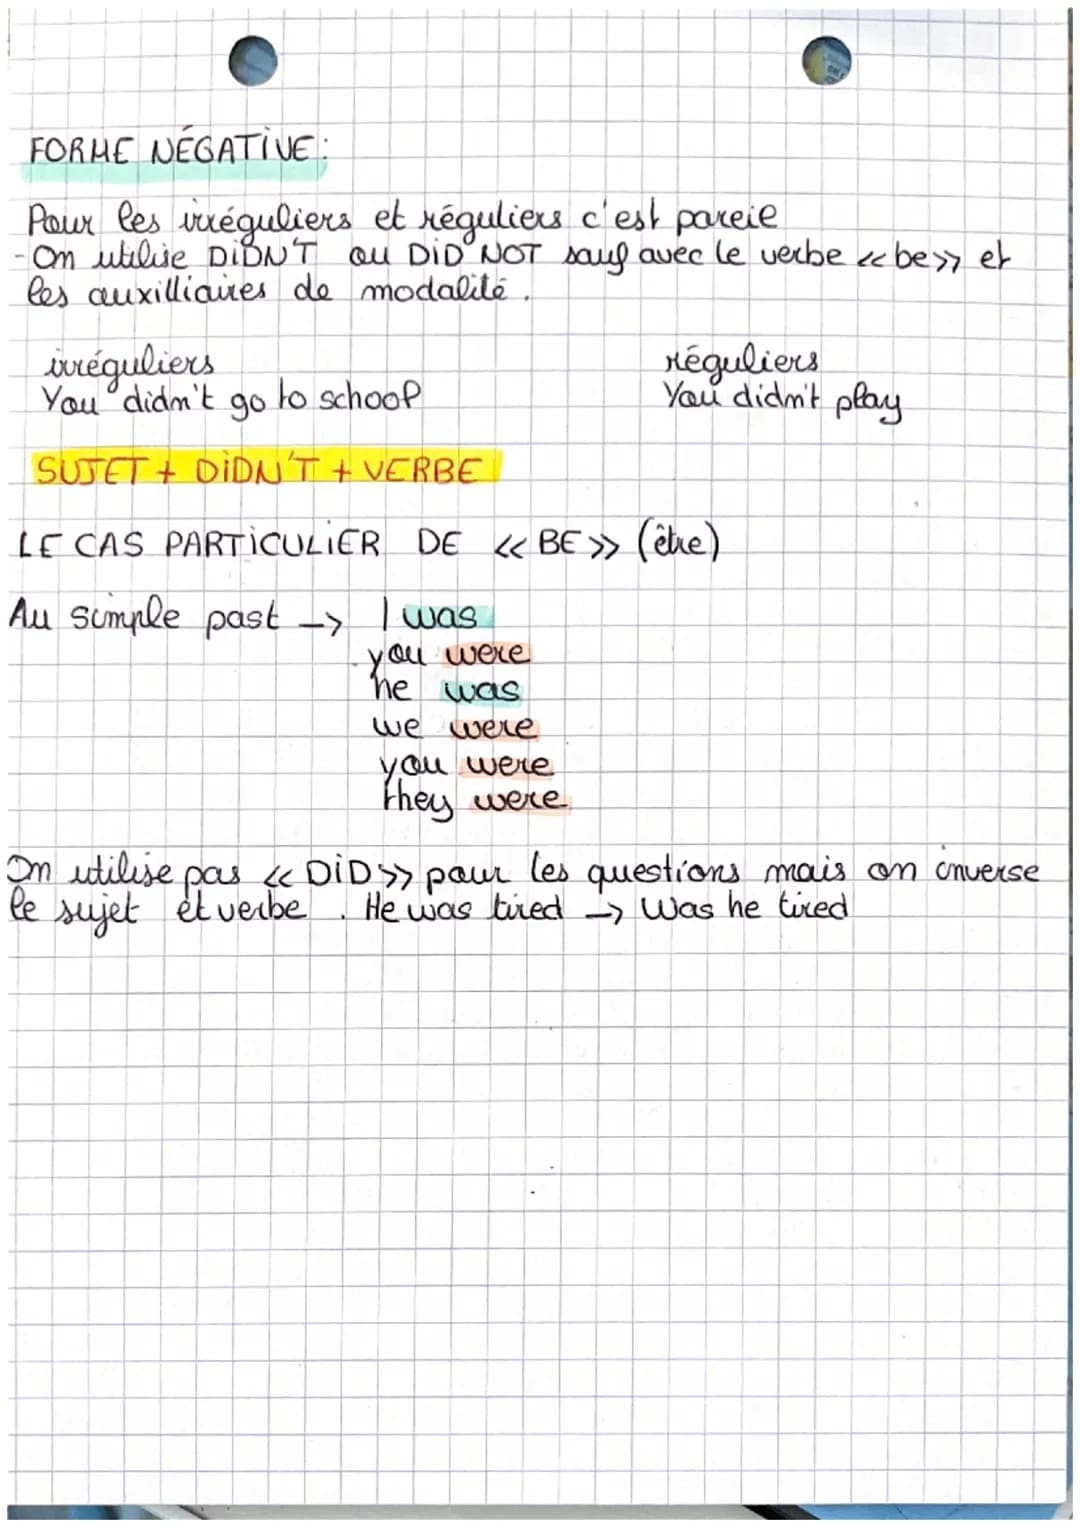 FORME NÉGATIVE:
Pour les irréguliers et réguliers c'est pareie
- On utilise DIDN'T ou DID NOT sauf avec le verbe << be >> et
les auxilliaires de modalité.
irréguliers réguliers
You didn't go to school You didn't play
SUJET + DIDN'T + VERBE
LE CAS PARTICULIER DE << BE >> (être)
Au simple past -> I was
you were
he was
we were
you were
they were
On utilise pas << DID >> pour les questions mais on inverse
le sujet et verbe. He was tired -> Was he tired